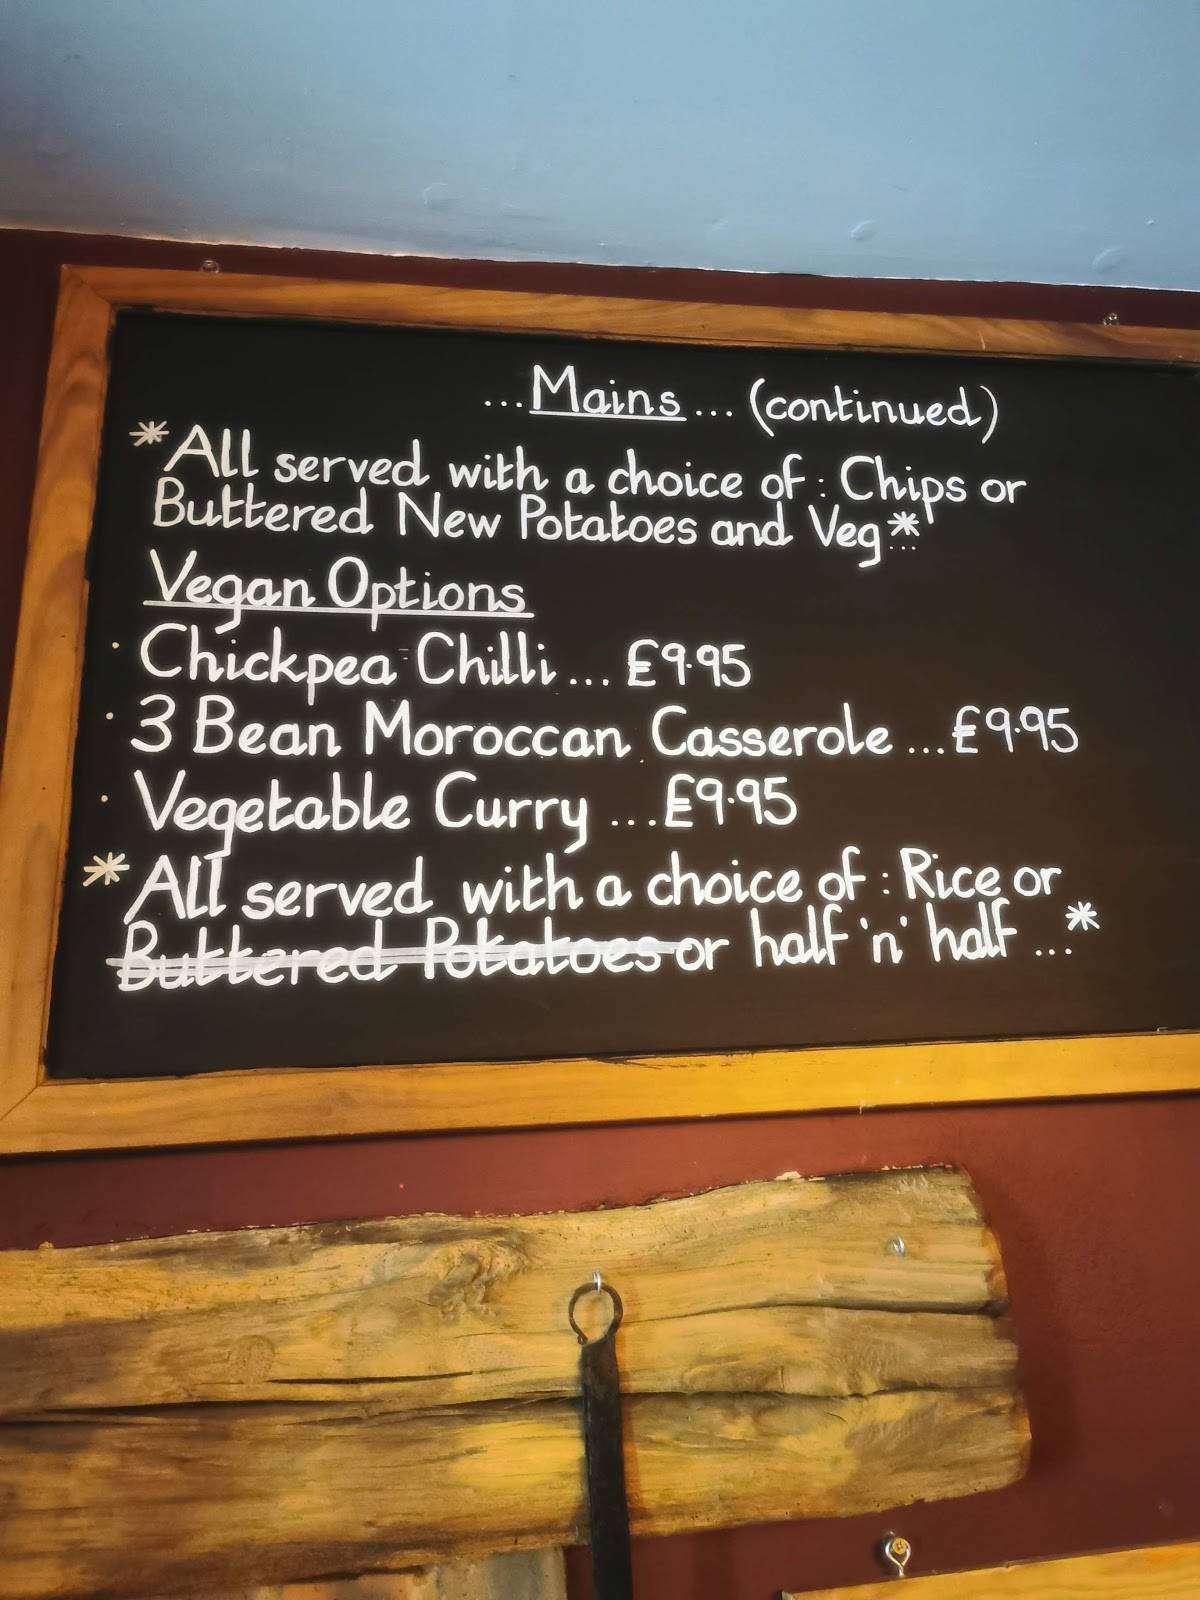 ...Mains... (continued)
*All served with a choice of: Chips or
Buttered New Potatoes and Veg*...
Vegan Options
· Chickpea Chilli... £9.95
· 3 Bean Moroccan Casserole...£9.95
· Vegetable Curry...£9.95
*All served with a choice of: Rice or
Buttered Potatoes or half 'n' half...*